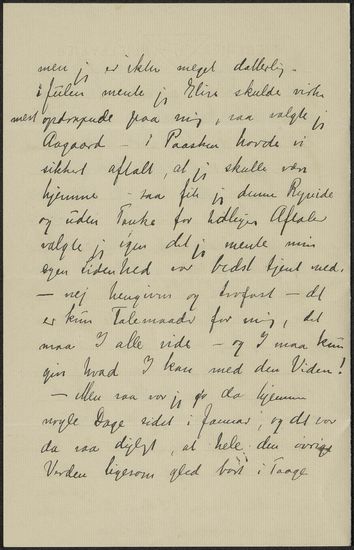 men jeg er ikke meget datterlig -
i Julen mente jeg Elise skulde virke
mest opdragende paa mig, saa valgte jeg
Aagaard - i Paasken havde vi
sikkert aftalt, at jeg skulle være
hjemme - saa fik jeg denne Rejse
og uden Tanke for tidligere Aftaler
valgte jeg igen det jeg mente min
egen lidenhed var bedst tjent med.
- nej hengivne og trofast - det
er kun Talemaader for mig, det
maa I alle vide - og I maa kun
gøre hvad I kan med den Viden!
- Men saa var jeg jo da hjemme
nogle Dage sidst i Januar, og det var
da saa dejligt, at hele den øvrige
Verden ligesom gled bort i Taage